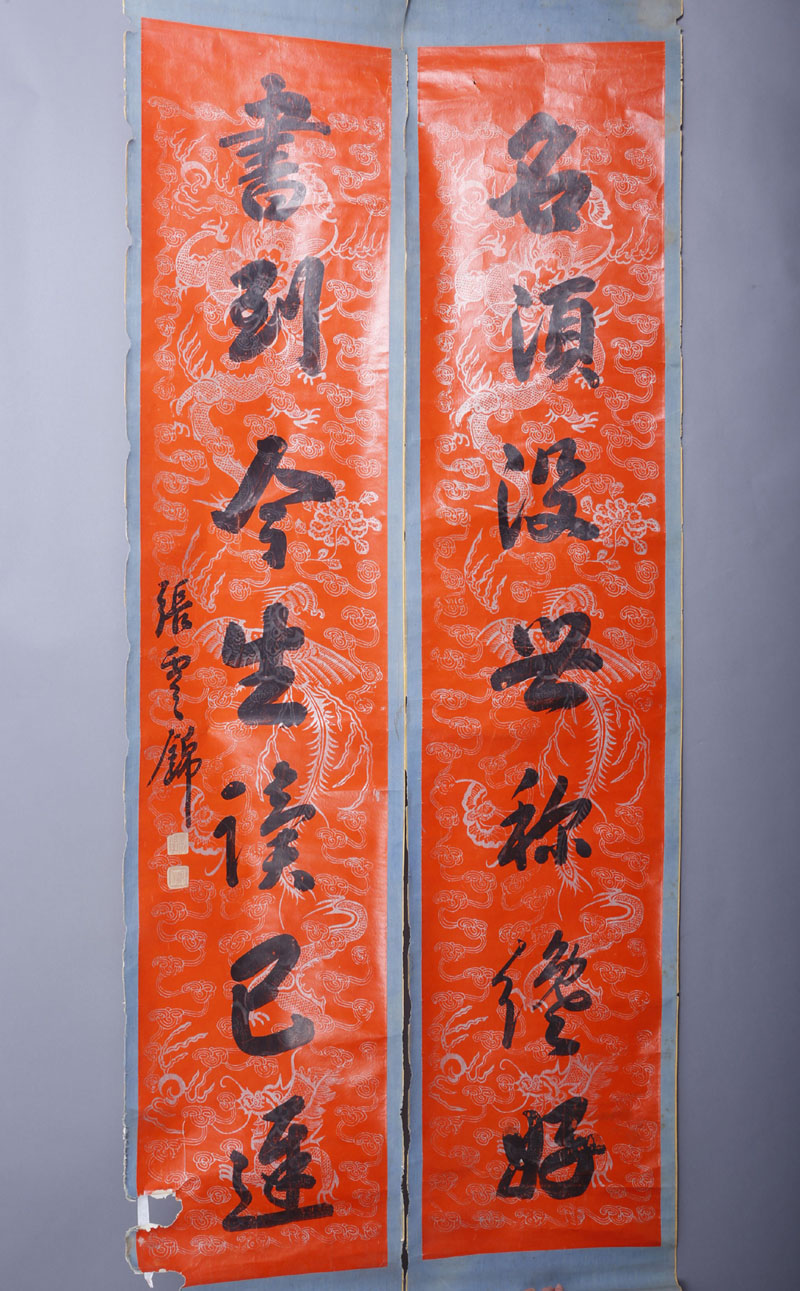 名須没世称纔好
書到今生读已遲
張雲錦